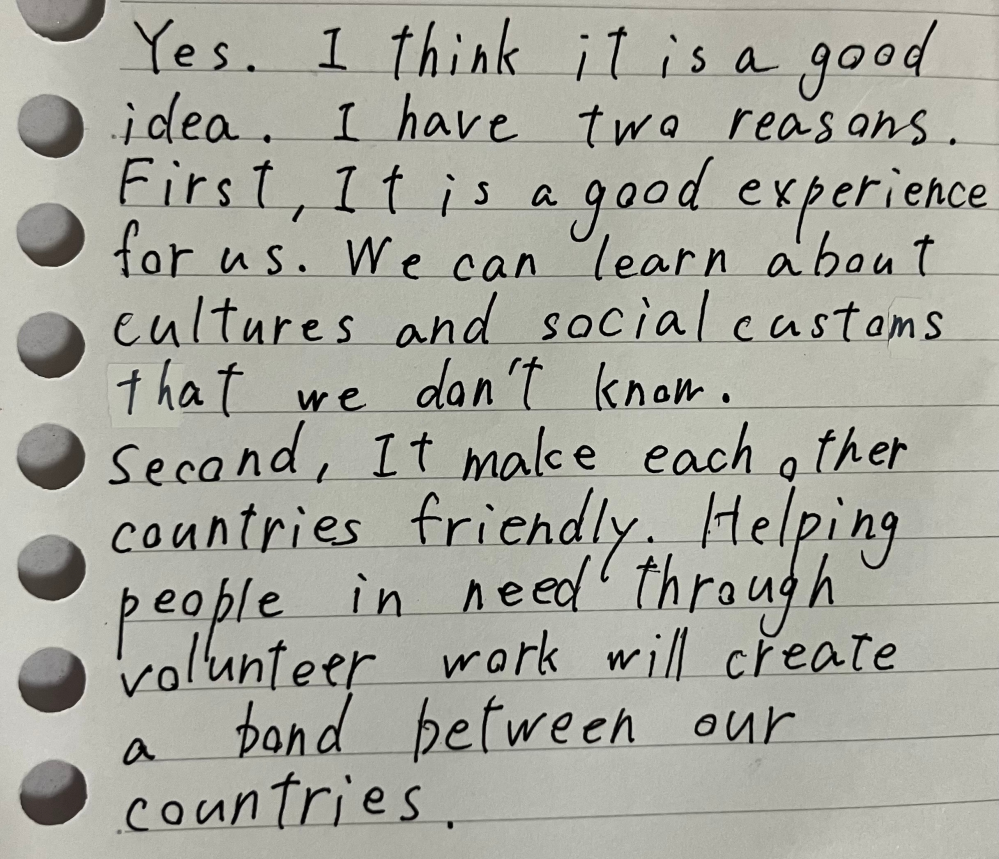 Yes. I think it is a good
idea. I have two reasons.
First, It is a good experience
for us. We can learn about
cultures and social customs
that we don't know.
Second, It make each other
countries friendly. Helping
people in need through
volunteer work will create
a bond between our
countries.